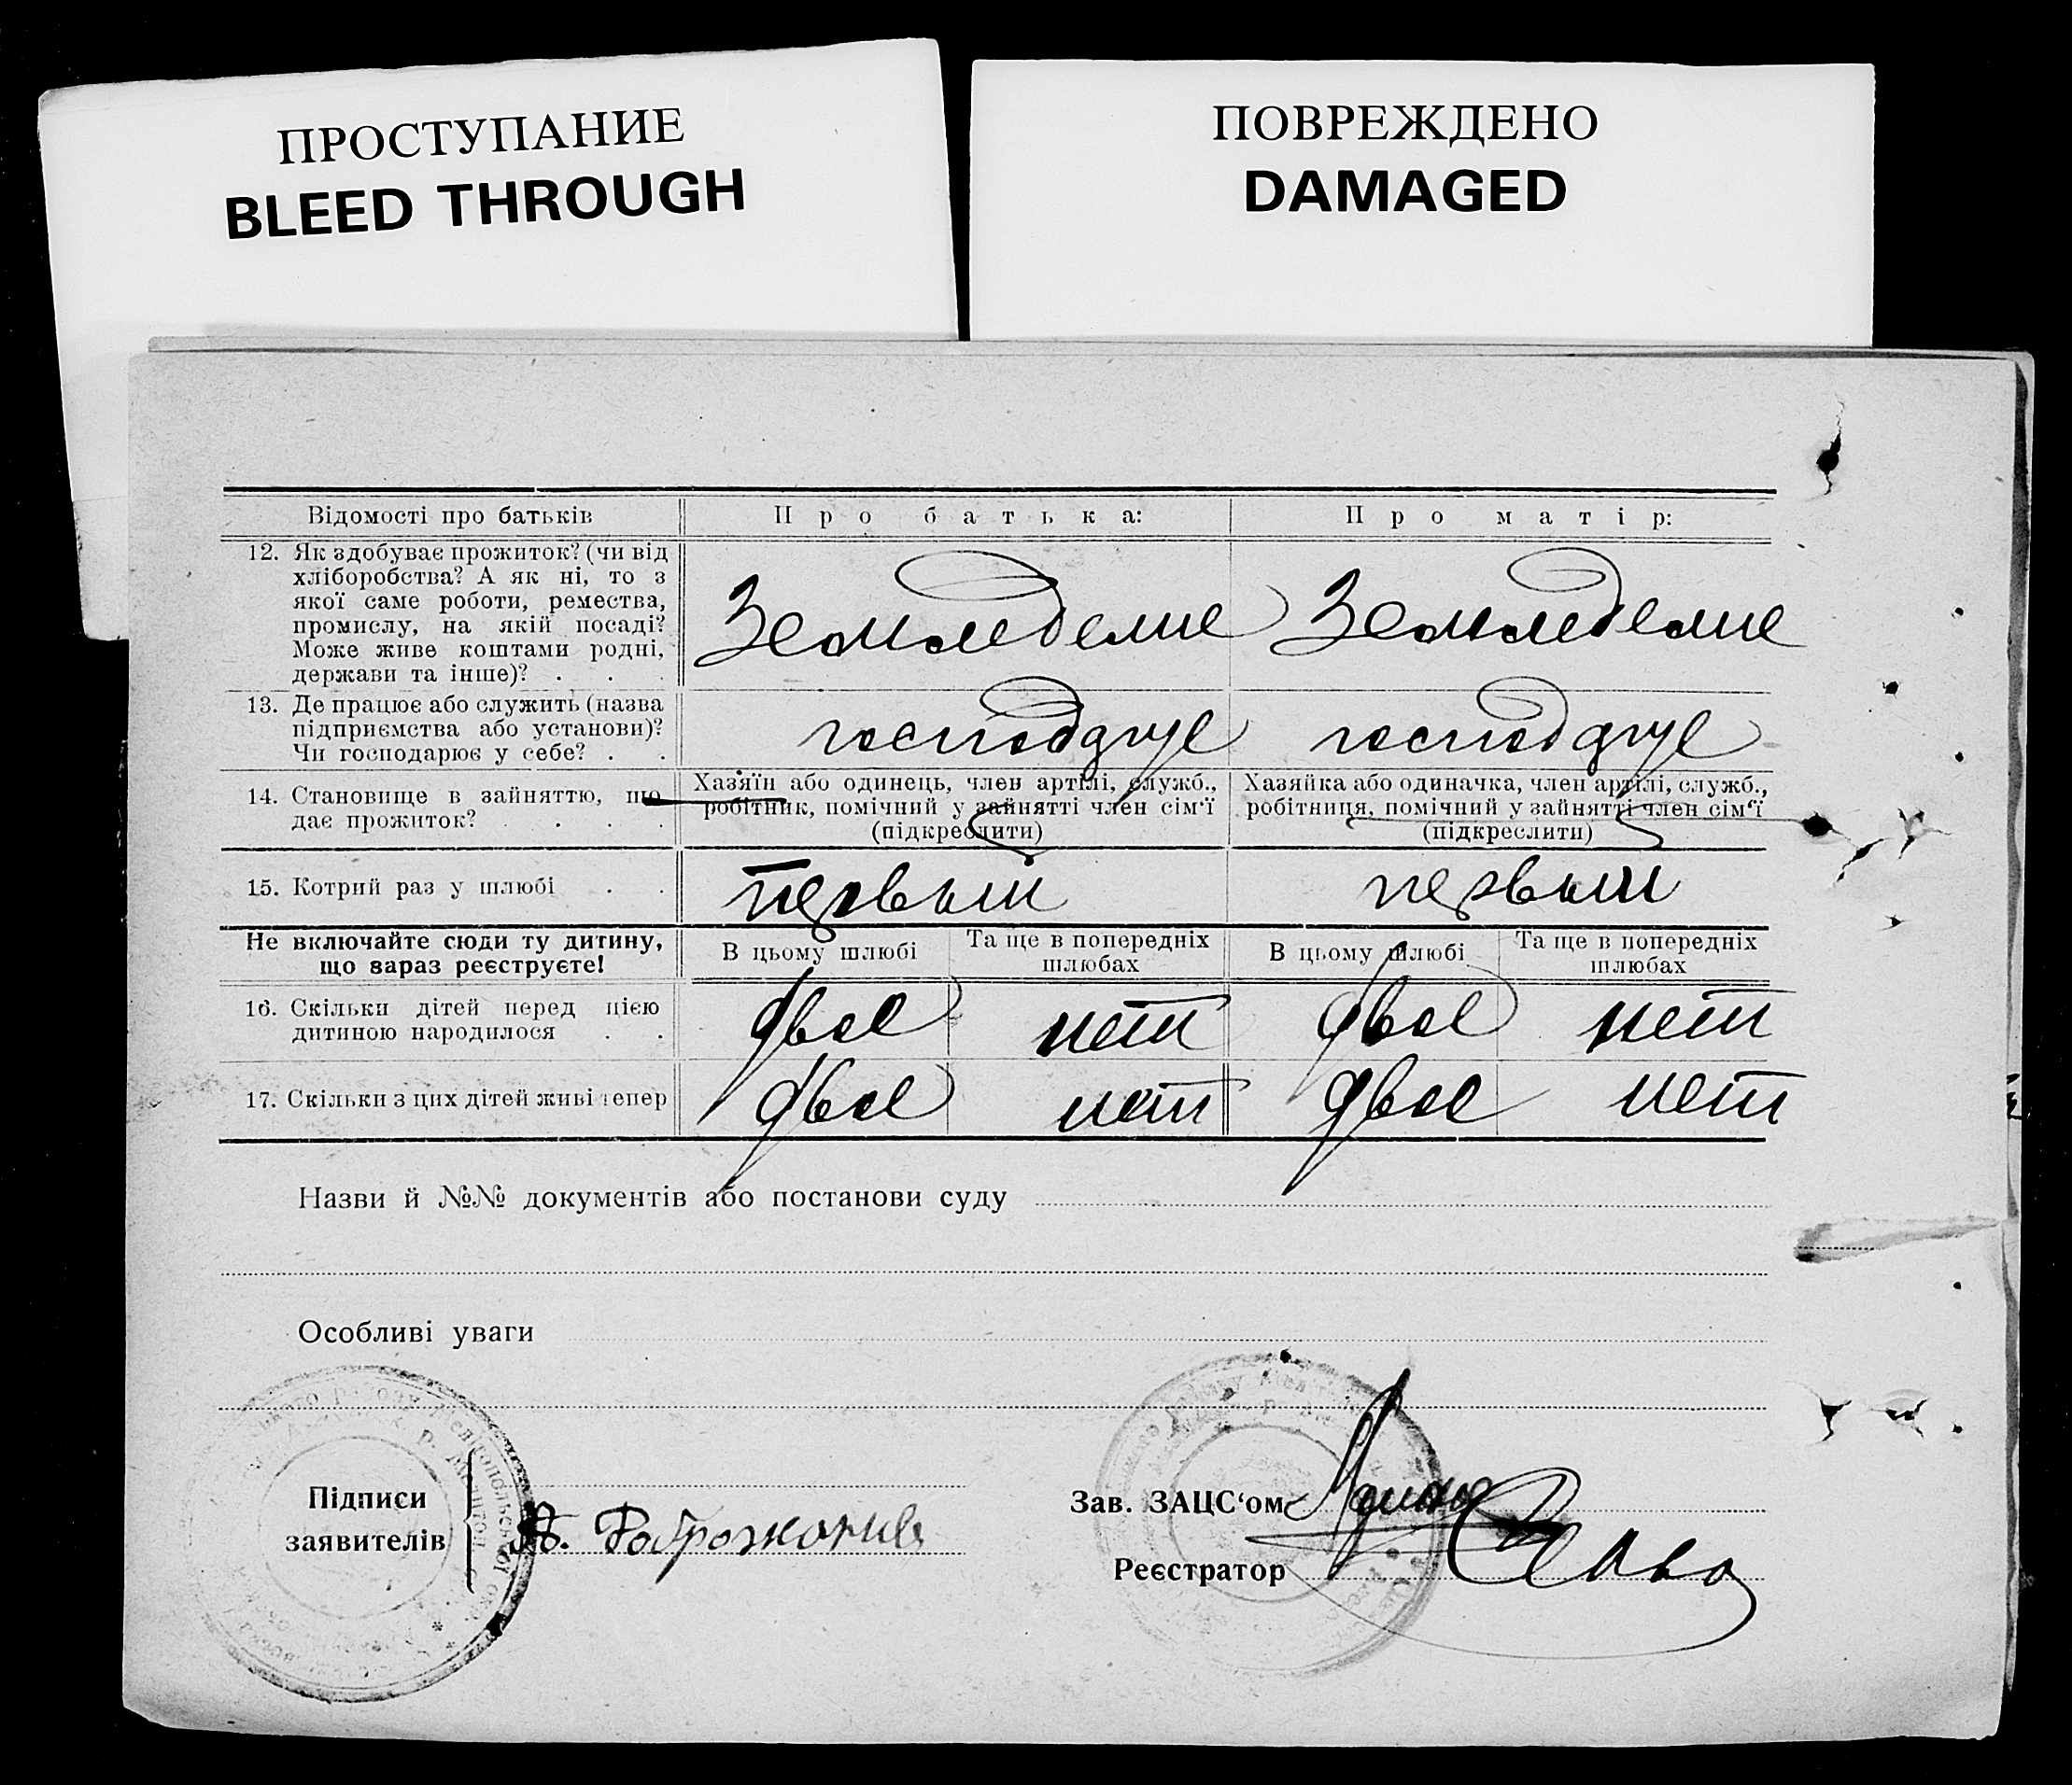 ПРОСТУПАНИЕ
BLEED THROUGH
ПОВРЕЖДЕНО
DAMAGED
Відомості про батьків
Про батька:
Про матір:
12. Як здобуває прожиток? (чи від
хліборобства? А як ні, то з
якої саме роботи, ремества,
промислу, на якій посаді?
Може живе коштами родні,
держави та інше)? . . .
Земледелие
Земледелие
13. Де працює або служить (назва
підприємства або установи)?
Чи господарює у себе? . .
14. Становище в зайняттю, що
дає прожиток? . . . .
Хазяїн або одинець, член артілі, служб.,
робітник, помічний у зайнятті член сім'ї
(підкреслити)
Хазяйка або одиначка, член артілі, служб.,
робітниця, помічний у зайнятті член сім'ї
(підкреслити)
15. Котрий раз у шлюбі . .
первый
первый
Не включайте сюди ту дитину,
що зараз реєструєте!
В цьому шлюбі
Та ще в попередніх
шлюбах
В цьому шлюбі
Та ще в попередніх
шлюбах
16. Скільки дітей перед цією
дитиною народилося . .
двое
нет
двое
нет
17. Скільки з цих дітей живі тепер
двое
нет
двое
нет
Назви й №№ документів або постанови суду
Особливі уваги
Підписи
заявителів
Зав. ЗАЦС'ом
Реєстратор